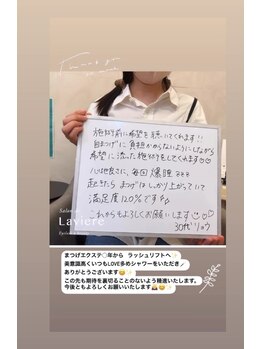 施術前に希望を聴いてくれます!!
自まつげに負担かからないようにしながら
希望に添った施術をしてくれます♡♡
心地良さに、毎回爆睡zzz
起きたら まつげはしっかり上がっていて
満足度120%です
これからもよろしくお願いします♡♡
30代
Salon de
Laviere
まつげエクステ○年から ラッシュリフトへ✨
美意識高くいつもLOVE多めシャワーをいただき
ありがとうございます
この先も期待を裏切ることのないよう精進いたします。
今後ともよろしくお願いいたします